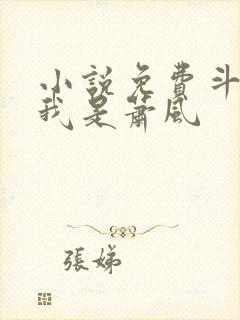 小說免費斗
我是蕭風
張娣